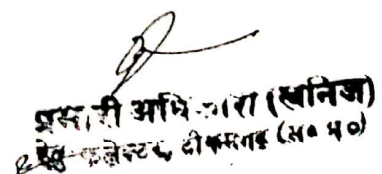 प्रभारी अधिकारी (खनिज)
कलेक्टर, टीकमगढ़ (म० प्र०)